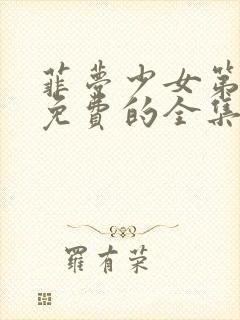 菲梦少女第
免費的全集
羅有荣